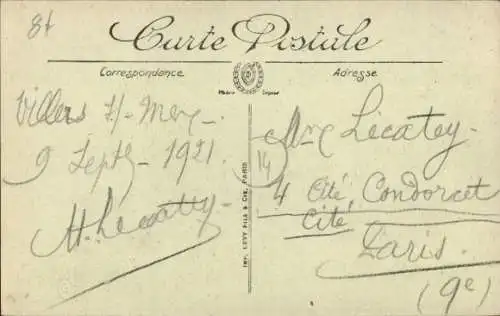 84
Carte Postale
Correspondance
Adresse
Villers s/- Mer -
9 Septb - 1921.
H. Lécatey -
IMP. LÉVY FILS & Cie, PARIS
Mme Lécatey -
14
4 Cité Condorcet
Cité
Paris.
(9e)